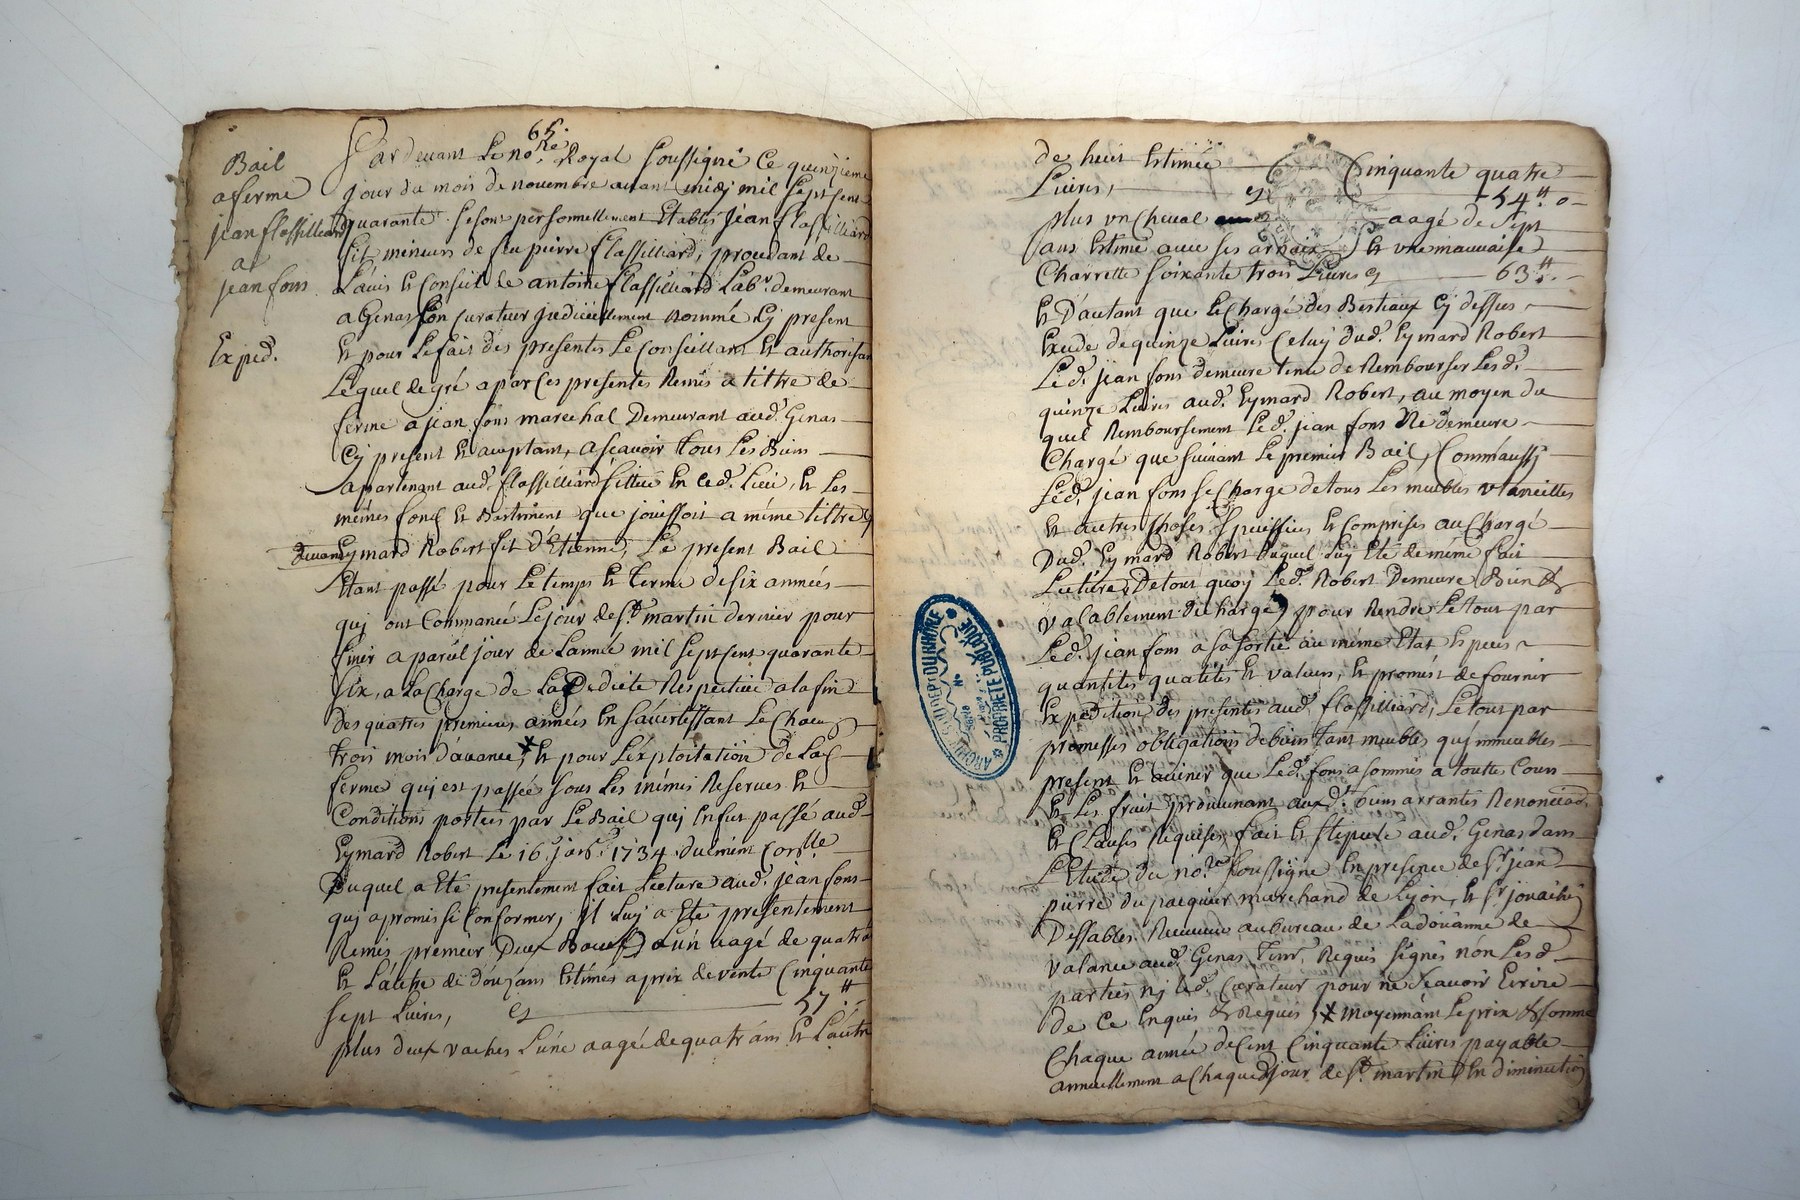 65.
Bail
a ferme
jean flassilliard
a
jean fons
Exped.
Par devant Le no.re Royal soussigné Ce quinzieme
jour du mois de novembre avant midj mil sept cent
quarante se sont personnellement Etablis Jean flassilliard
fil mineurs de feu pierre flassilliard, procedant de
L'avis et Conseil de antoine flassilliard Lab.r demeurant
a Genas son Curateur judiciellement nommé Cy present
Et pour Le fait des presentes Le Conseillant Et authorisant
Lequel de gré a par Ces presentes Remis a tittre de
ferme a jean fons marechal Demeurant aud.t Genas
Cy present Et aceptant, a scavoir tous Les Biens
apartenant aud.t flassilliard sittués En Ced.t Lieu, Et Les
mêmes fond Et Bastiment que jouissoit a même tittre Cy
devant Eymard Robert fil d'Etienne, Le present Bail
Etant passé pour Le temps Et Terme de six années
quj ont Commancé Le jour de s.t martin dernier pour
finir a pareil jour de L'année mil sept cent quarante
six, a La Charge de La Dedicte Respective a la fin
des quatres premieres années En s'avertissant
trois mois d'avance, x Et pour L'exploitation de La
ferme quj est passée sous Les mémes Reserves Et
Conditions portées par Le Bail quj En fut passé aud.
Eymard Robert Le 16. 1734
Duquel a Eté presentement fait Lecture aud.t jean fons
quj a promis s'i Conformer, jl Luy a Eté presentement
Remis premier Deux Boeufs un aagé de quatre
Et L'autre de d'ouz ans Estimés a prix de vente Cinquante
sept Livres, Cy 57.tt
plus deux vaches L'une aagée de quatr ans Et L'autre
de huit Estimée Cinquante quatre
Livres, Cy 54.tt 0
plus un Cheval aagé de sept
ans Estimé avec ses arnais Et une mauvaise
Charrette soixante trois Livres Cy 63.tt
Et D'autant que Le Chargé des Bestiaux Cy dessus
Exede de quinze Livres Celuy dud.t Eymard Robert
Led.t jean fons demeure tenu de Rembourser Lesd.t
quinze Livres aud.t Eymard Robert, au moyen du
quel Remboursement Led.t jean fons Ne demeure
Chargé que suivant Le premier Bail, Comm'aussy
Led.t jean fons se Charge de tous Les meubles
Et autres Choses Et Comprises au Chargé
Dud.t Eymard Robert Duquel Luy Eté de même fait
Lecture, De tout quoy Led.t Robert Demeure Bien &
valablement dechargé, pour Rendre Le tout par
Led.t jean fons a sa sortie au même Etat
quantités qualités Et valeurs, Et promis de fournir
Expedition des presentes aud.t flassilliard, Le tout par
promesses obligations de biens tant meubles qu'jmmeubles
present Et avenir que Led.t fons a sommis a toutes Cours
Et Les frait
Et Clauses Requises, fait Et stipulé aud.t Genas dans
L'Etude du no.re soussigné En presence de s.r jean
pierre dupacquier marchand de Lyon, Et s.r
Dessables Receveur au bureau de La doüanne de
valance aud.t Genas Requis signés non Lesd.
parties nj Led. Curateur pour ne scavoir Ecrire
de Ce Enquis & Requis, x moyennant Le prix & somme
Chaque année de Cent Cinquante Livres payable
annuellement a Chaque jour de s.t martin En diminution
ARCHIVES DU DEP.t DU RHÔNE
PROPRIÉTÉ PUBLIQUE